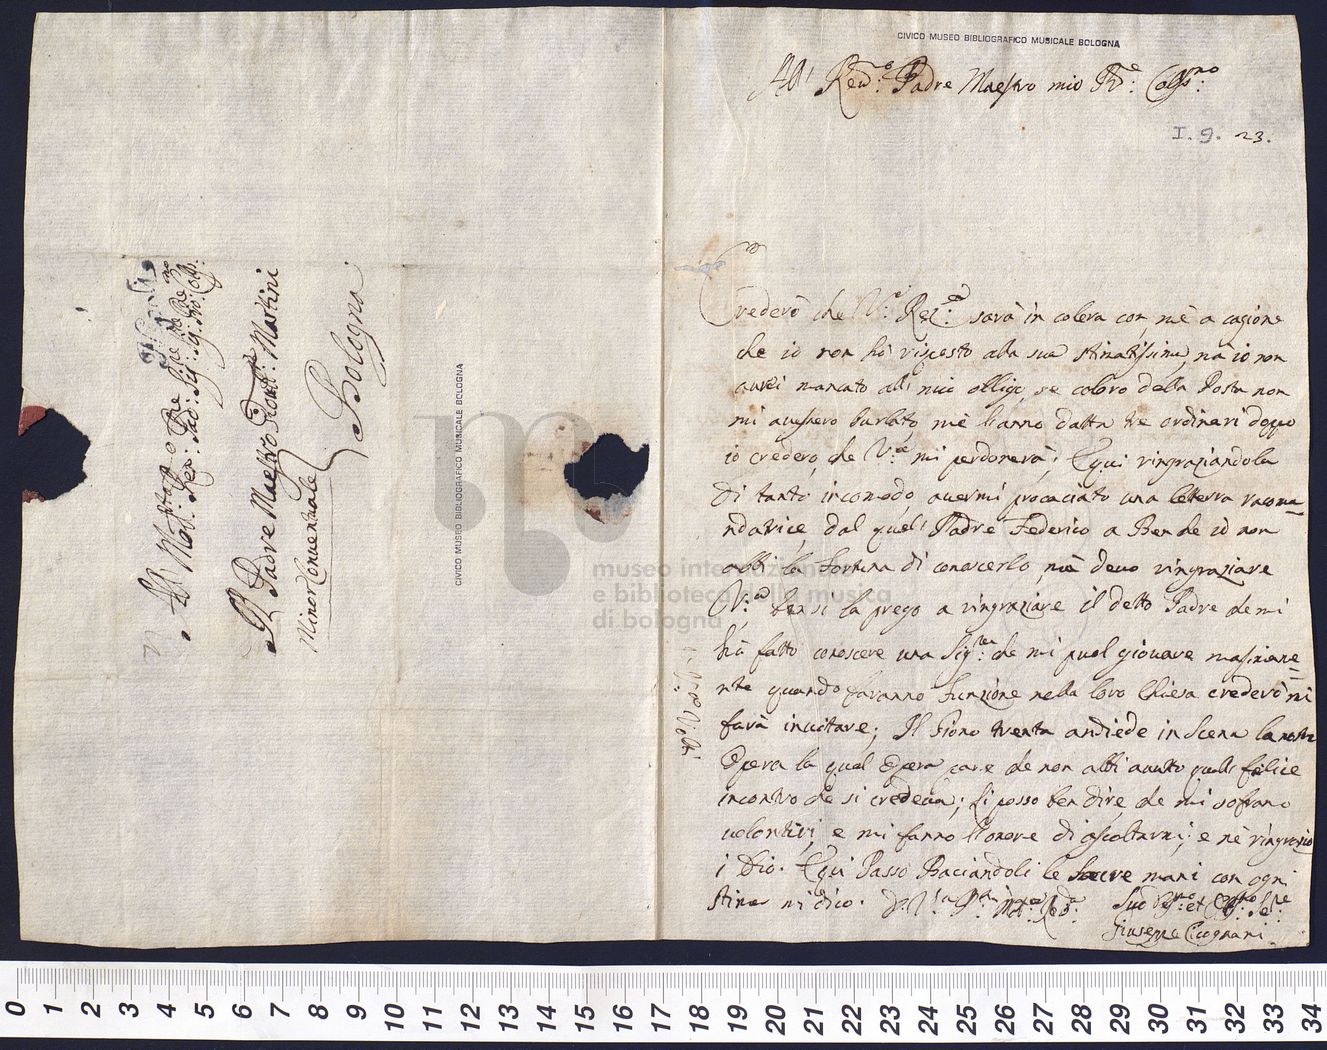 CIVICO MUSEO BIBLIOGRAFICO MUSICALE BOLOGNA
Rev:mo Padre Maestro mio P:ne Colgmo:
I. 9. 23.
Crederò che V:a Rev:a sarà in colera con mè a cagione
che io non hò risposto alla sua stimatissima, ma io non
aurei mancato all' mio obligo, se coloro della Posta non
mi auessero burlato, mè l'anno datta tre ordinari doppo
io credero, che V:a mi perdonerà; E qui ringraziandola
di tanto incomodo, auermi procaciato una letterra racoma=
ndatrice, dal quel' Padre Federico a Ben che io non
abbi la fortuna di conoscerlo, nè deuo ringraziare
V:a ben si la prego a ringraziare il detto Padre che mi
hà fatto conoscere una Sig:ra che mi puol giouare masimame=
nte quando faranno funzione nella loro Chiesa crederò mi
farà inuitare; Il Giono trenta andiede in Scena la nostra
Opera la qual Opera pare che non abbi auuto quell felice
incontro che si credeua; Li posso ben dire, che mi sofrano
uolontiri, e mi fanno l'onore di ascoltarmi; e nè ringrazio
i Dio. E qui Passo Baciandoli le Sacre mani con ogni
stima mi dico.
Giuseppe Cicognani
Al
Padre Maestro Giouu: Martini
Minor Conuentuale
Bologna
CIVICO MUSEO BIBLIOGRAFICO MUSICALE BOLOGNA
museo internazionale
e biblioteca della musica
di bologna
0 1 2 3 4 5 6 7 8 9 10 11 12 13 14 15 16 17 18 19 20 21 22 23 24 25 26 27 28 29 30 31 32 33 34